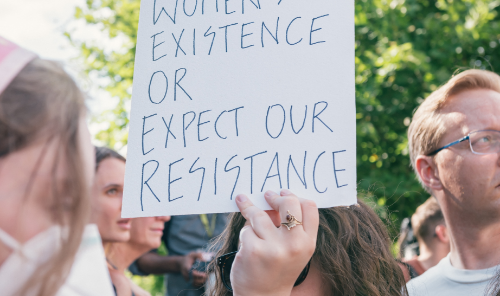 WOMEN'S
EXISTENCE
OR
EXPECT OUR
RESISTANCE